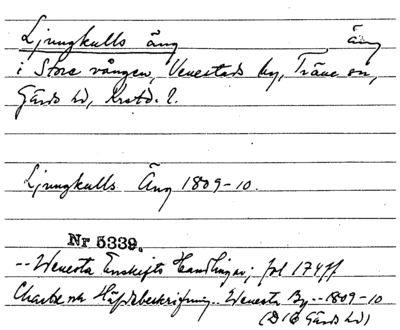 Ljungkulls äng äng
i Stora vången, Venestads by, Träne sn,
Gärds hd, Krstd. l.
Ljungkulls Äng 1809-10.
Nr 5339.
-- Wenesta Enskifts Handlingar; fol 174ff
Charte och Häfdebeskrifning.. Wenesta By -- 1809-10
(D16 Gärds hd)